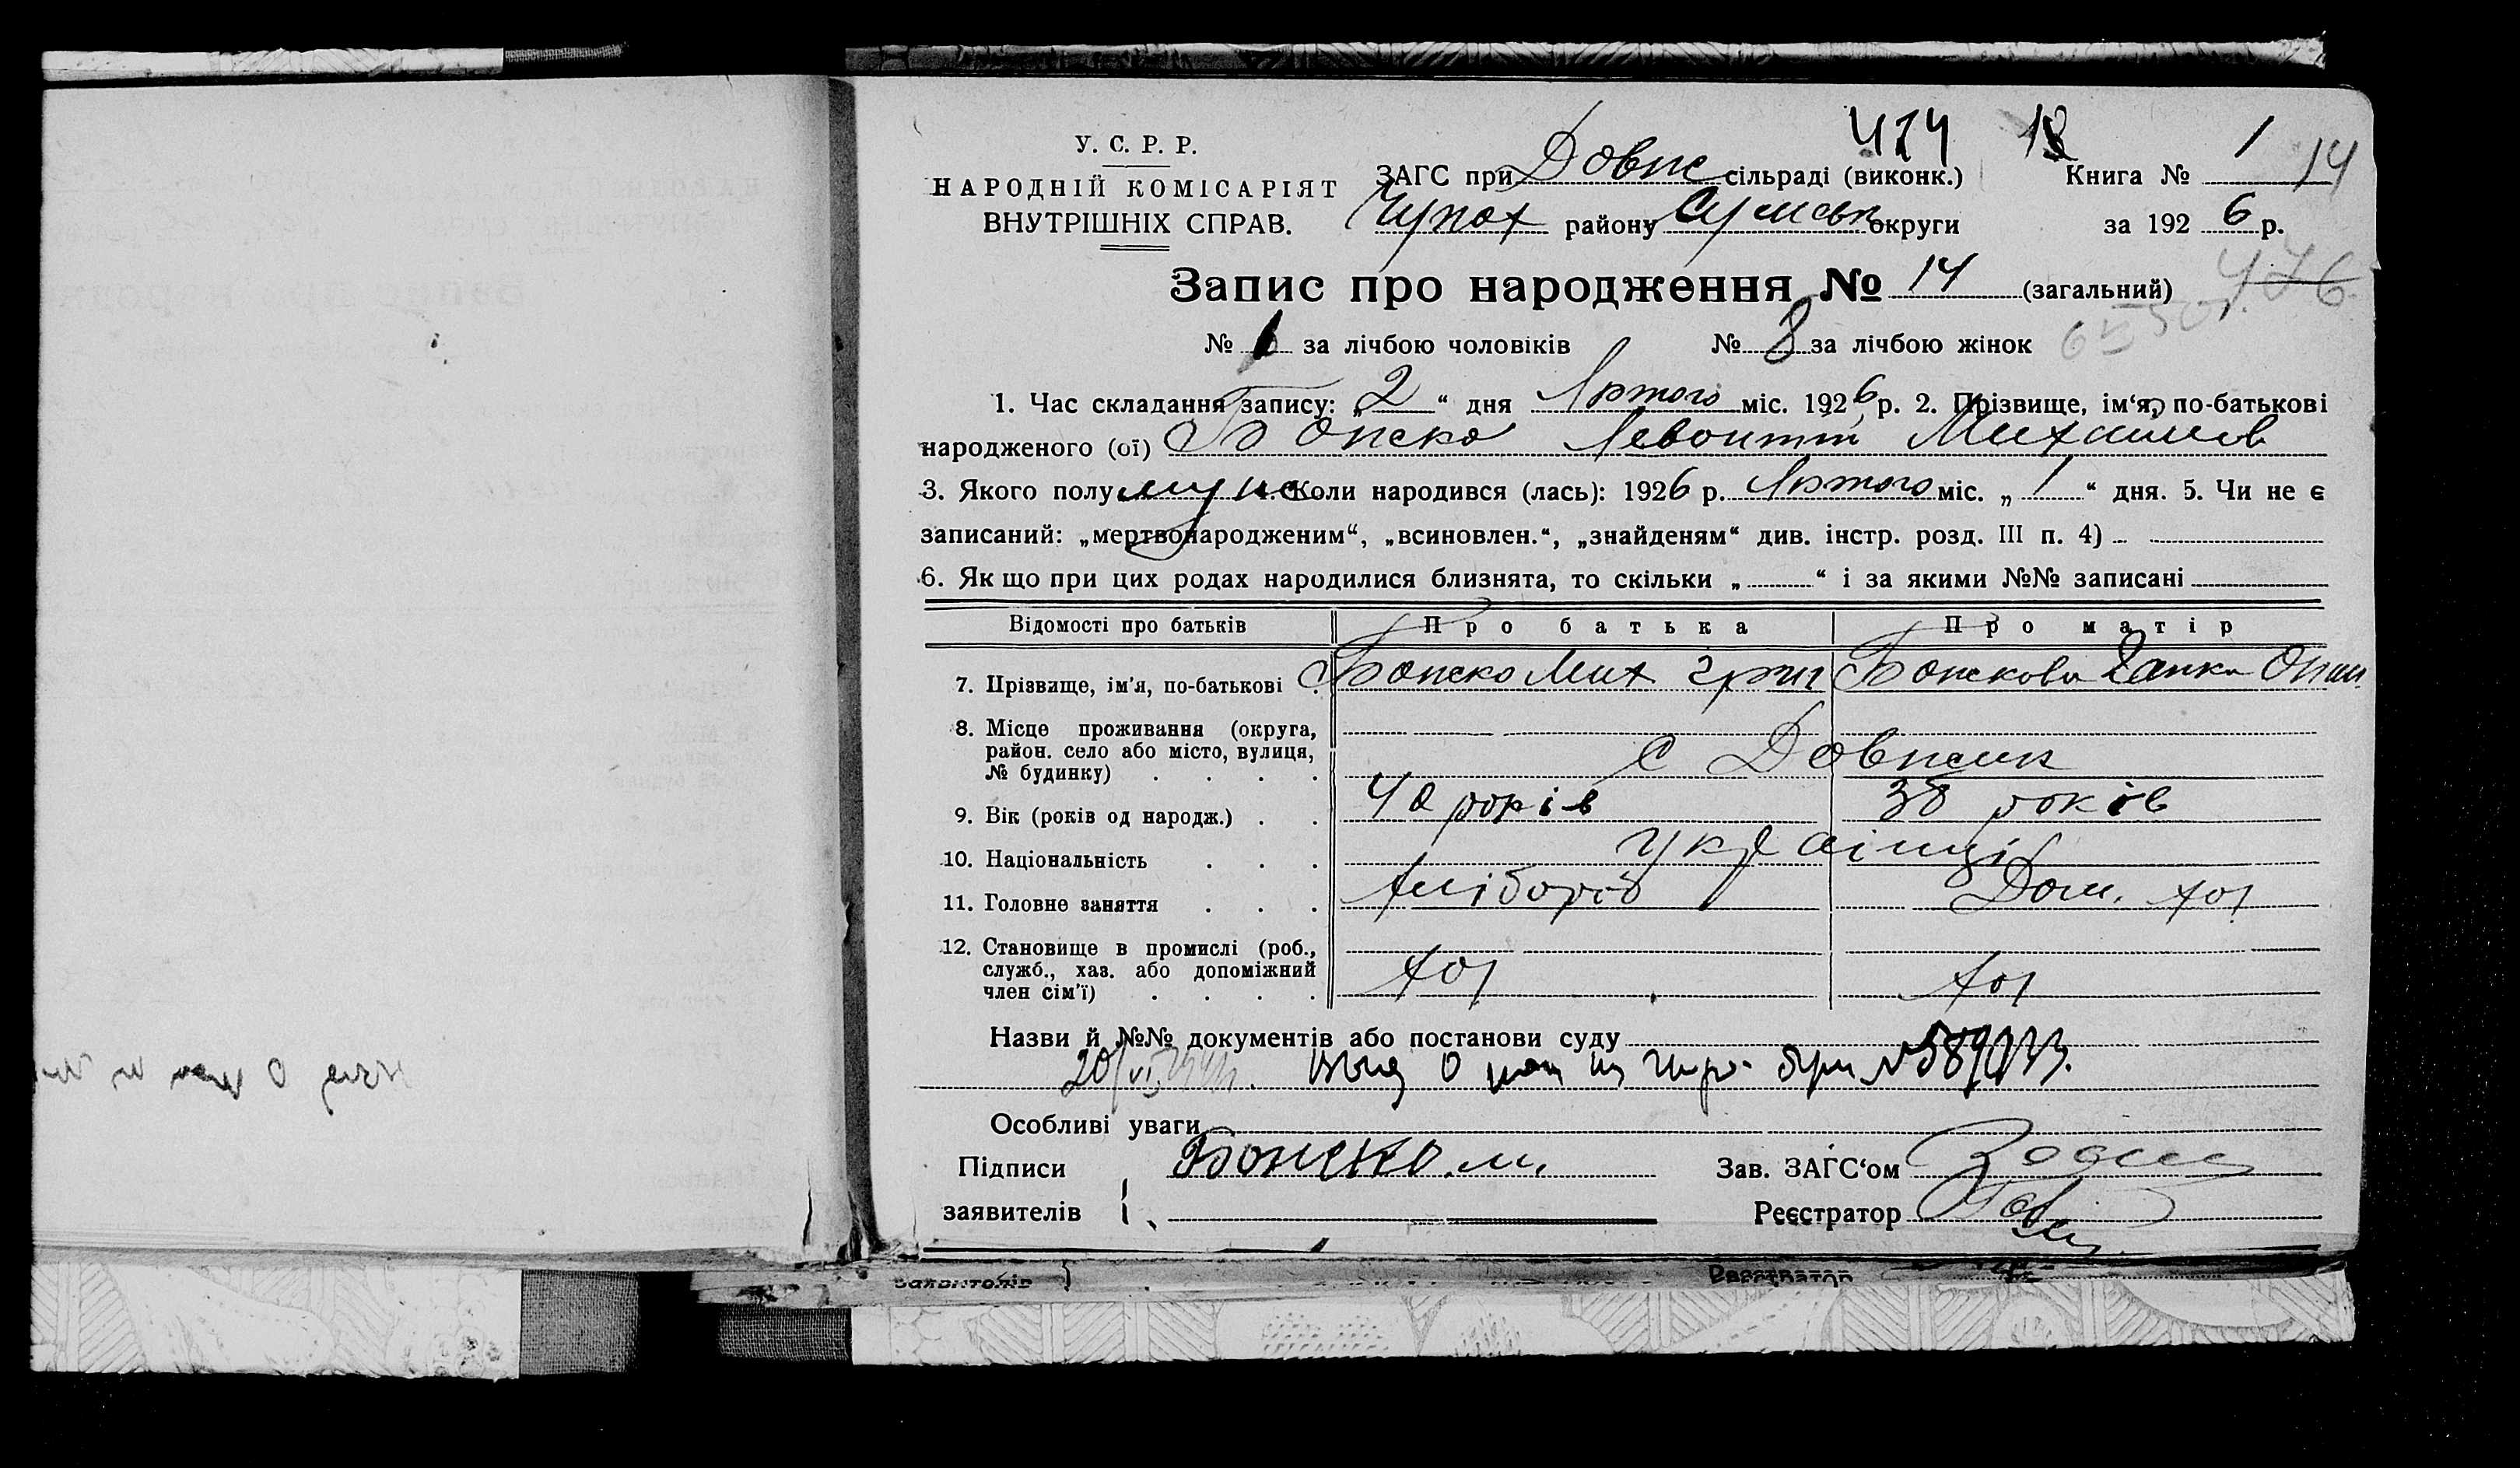 474 18 1 14
У. С. Р. Р.
НАРОДНІЙ КОМІСАРІЯТ
ВНУТРІШНІХ СПРАВ.
ЗАГС при Довж сільраді (виконк.) Книга №
Чупах району Сумськ округи за 192 6 р.
Запис про народження № 14 (загальний) 476
№ за лічбою чоловіків № 8 за лічбою жінок
1. Час складання запису: „ 2 “ дня Лютого міс. 1926 р. 2. Прізвище, ім‘я, по-батькові
народженого (ої) Божско Левонтій Михайлов
3. Якого полу муж 4. Коли народився (лась): 1926 р. Лютого міс. „ 1 “ дня. 5. Чи не є
записаний: „мертвонародженим“, „всиновлен.“, „знайденям“ див. інстр. розд. III п. 4)
6. Як що при цих родах народилися близнята, то скільки „ “ і за якими №№ записані
Відомості про батьків Про батька Про матір
7. Прізвище, ім'я, по-батькові Божско Мих Григ Божскова Ганка
8. Місце проживання (округа,
район. село або місто, вулиця,
№ будинку) с Довжик
9. Вік (років од народж.) 40 років 38 років
10. Національність українці
11. Головне заняття хлібороб Дом. хоз
12. Становище в промислі (роб.,
служб., хаз. або допоміжний
член сім'ї) хоз хоз
Назви й №№ документів або постанови суду
20/VI
Особливі уваги
Підписи Божско. М. Зав. ЗАГС‘ом
заявителів Реєстратор
заявителів Реєстратор